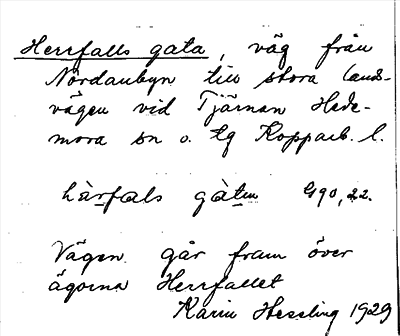 Herrfalls gata, väg från
Nordanbyn till stora lands-
vägen vid Tjärnan Hede-
mora sn o. tg Kopparb. l.
hàrfals gàtan G90,22.
Vägen går fram över
ägorna Herrfallet
Karin Hessling 1929